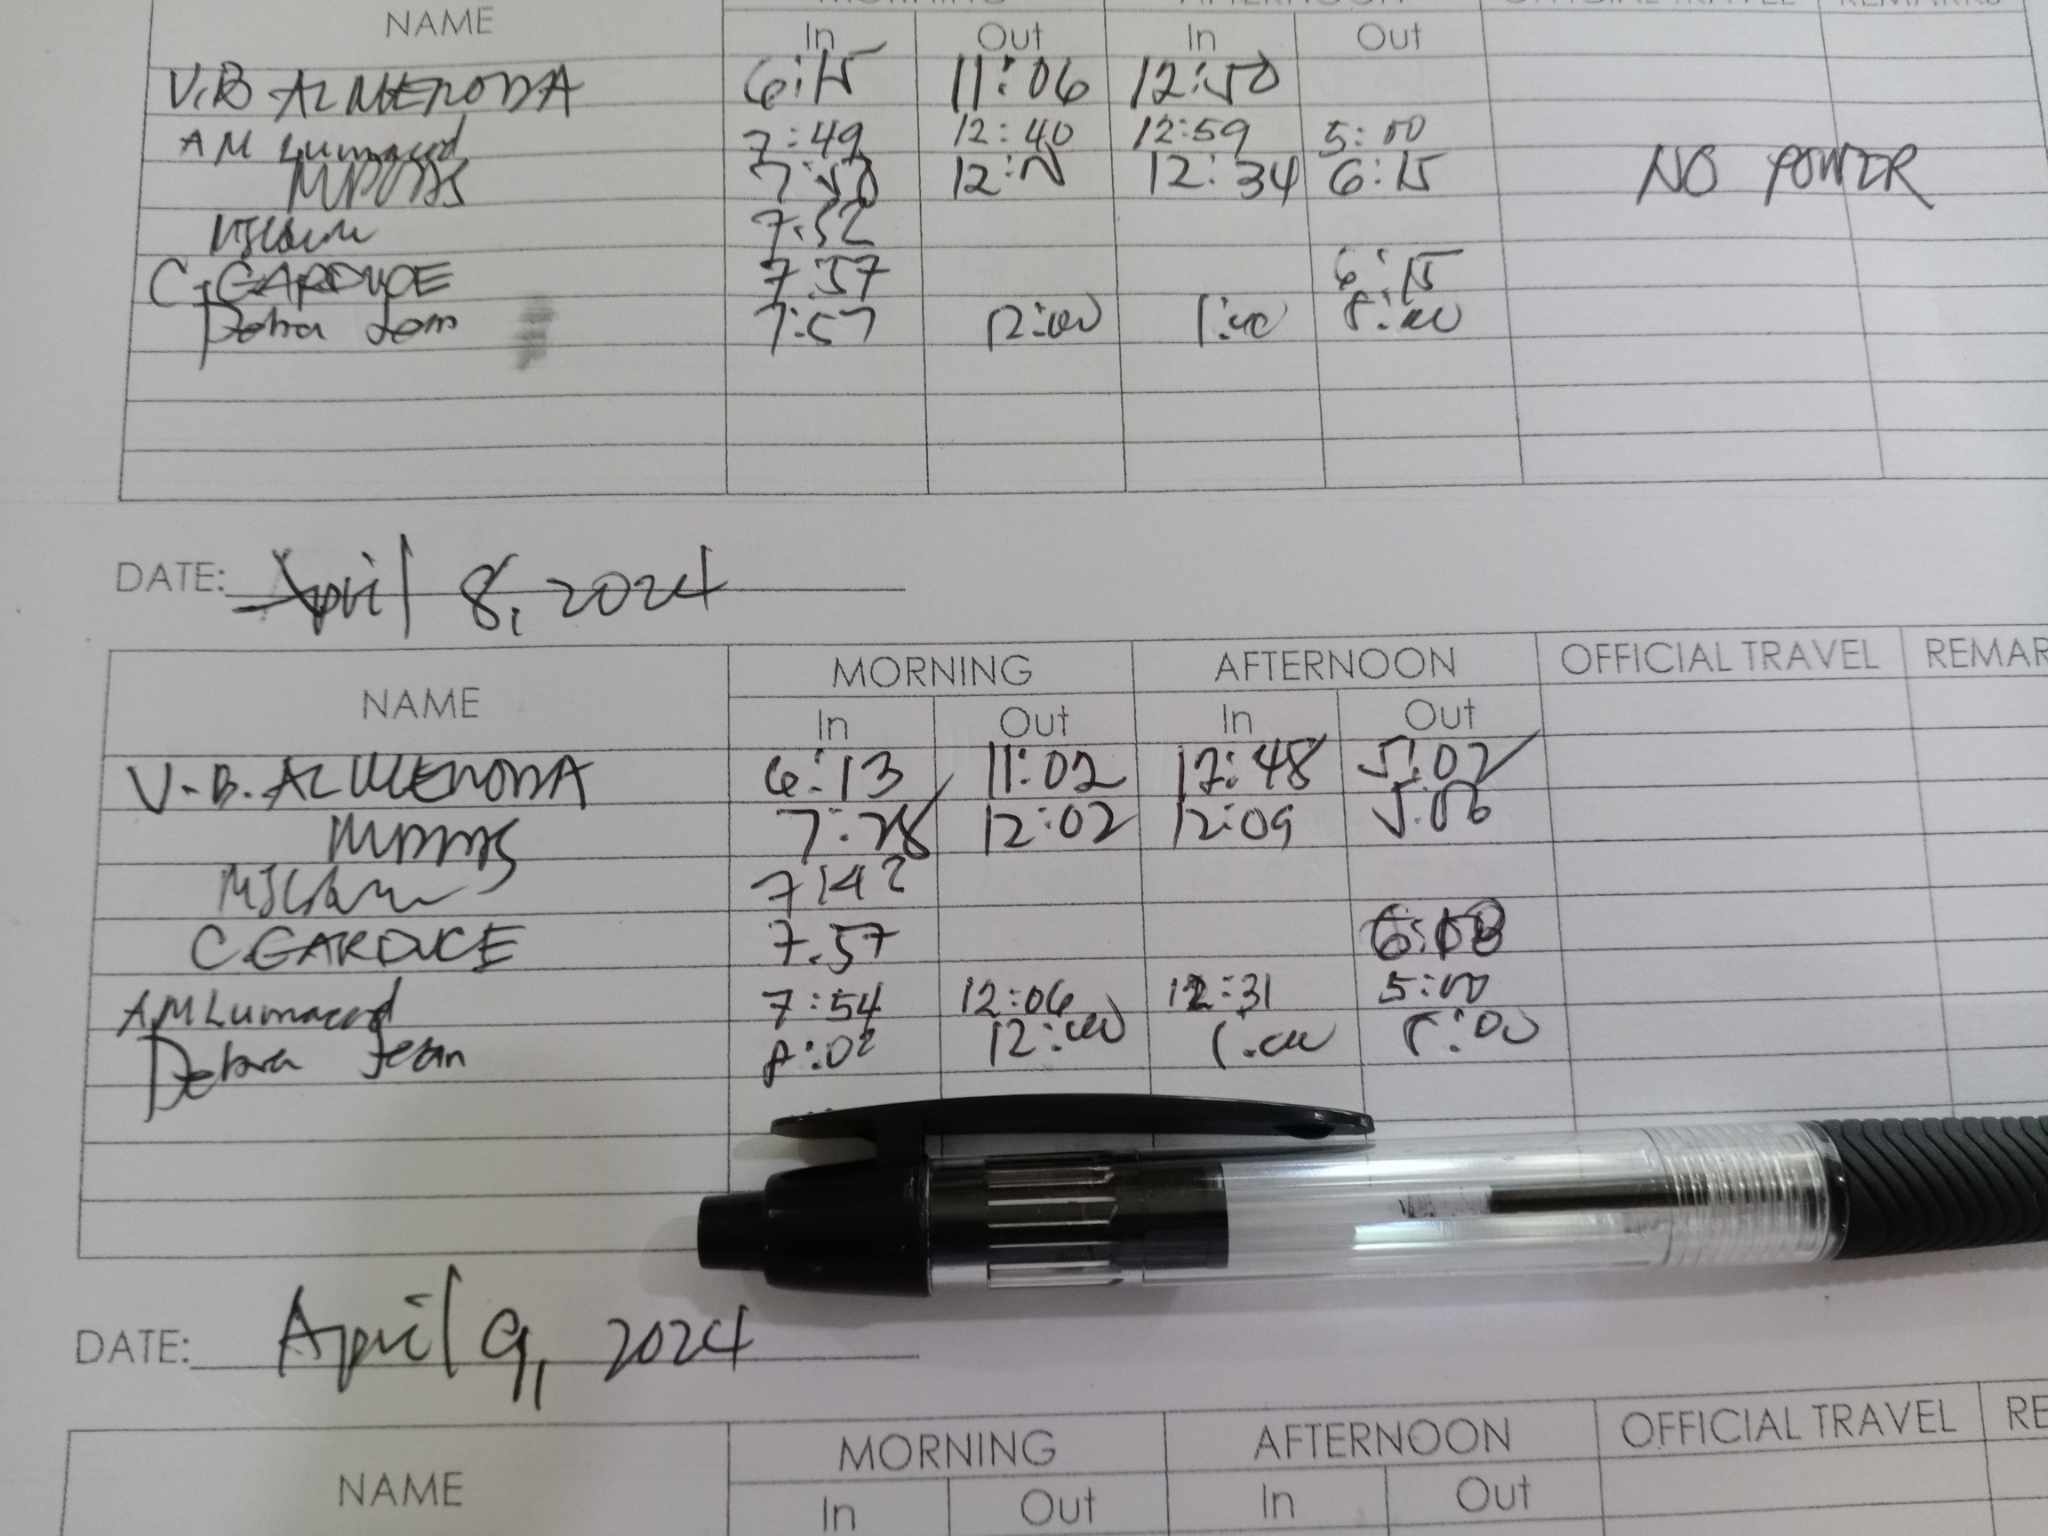 NAME In Out In Out
V.B. ALMENODA 6:15 11:06 12:50
AM Lumaced 7:49 12:40 12:59 5:00
7:50 12:N 12:34 6:15 NO POWER
7.52
C. GARDUCE 7.57 6:15
Debra Jean 7:57 12:00 1:00 5:00
DATE: April 8, 2024
NAME MORNING AFTERNOON OFFICIAL TRAVEL REMAR
In Out In Out
V.B. ALMENODA 6:13 11:02 12:48 5:02
7:28 12:02 12:09 5:06
7:42
C. GARDUCE 7.57
AM Lumaced 7:54 12:06 12:31 5:00
Debra Jean 8:02 12:00 1:00 5:00
DATE: April 9, 2024
NAME MORNING AFTERNOON OFFICIAL TRAVEL RE
In Out In Out